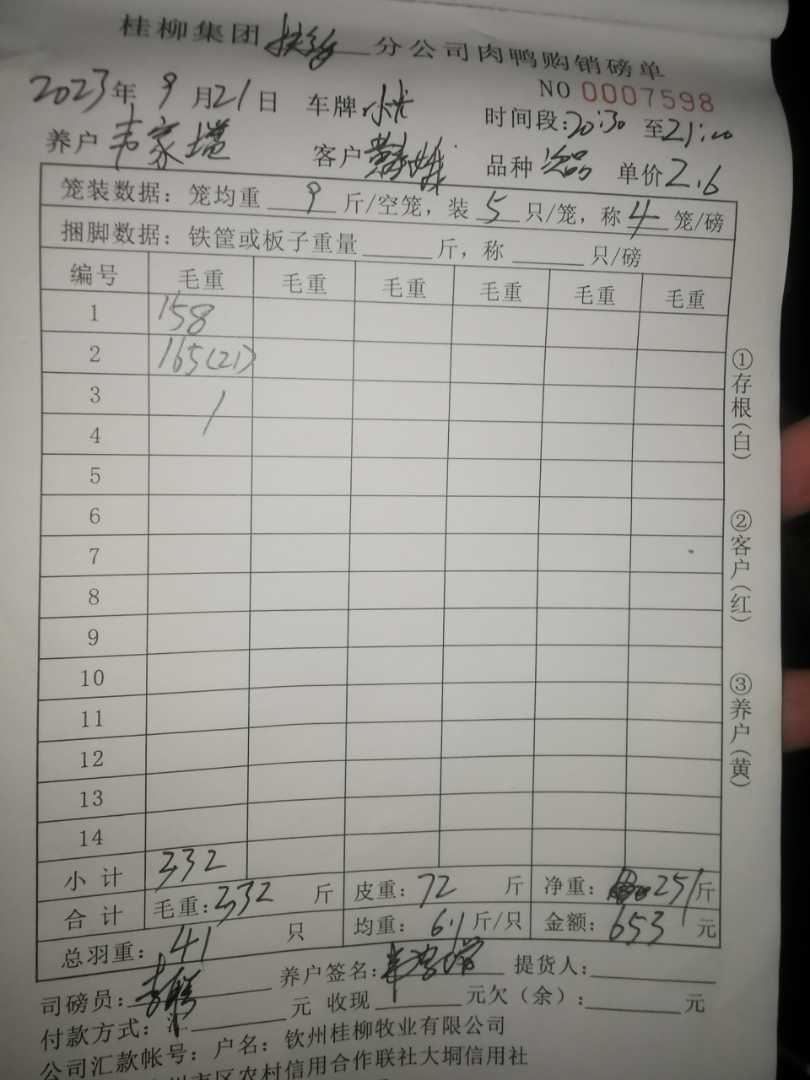 桂柳集团 分公司肉鸭购销磅单
NO 0007598
2023年 9 月21日 车牌: 时间段:20:30 至21:00
养户 韦家 客户 品种 次品 单价2.6
笼装数据：笼均重 9 斤/空笼，装 5 只/笼，称 4 笼/磅
捆脚数据：铁筐或板子重量 斤，称 只/磅
编号 毛重 毛重 毛重 毛重 毛重 毛重
1 158
2 165(21)
3
4
5
6
7
8
9
10
11
12
13
14
小 计 332
合 计 毛重:332 斤 皮重: 72 斤 净重: 251斤
总羽重: 41 只 均重: 6.1斤/只 金额: 653 元
司磅员: 养户签名: 提货人:
付款方式: 汇 元 收现 元欠（余）: 元
公司汇款帐号：户名：钦州桂柳牧业有限公司
州市区农村信用合作联社大垌信用社
①存根(白)
②客户(红)
③养户(黄)